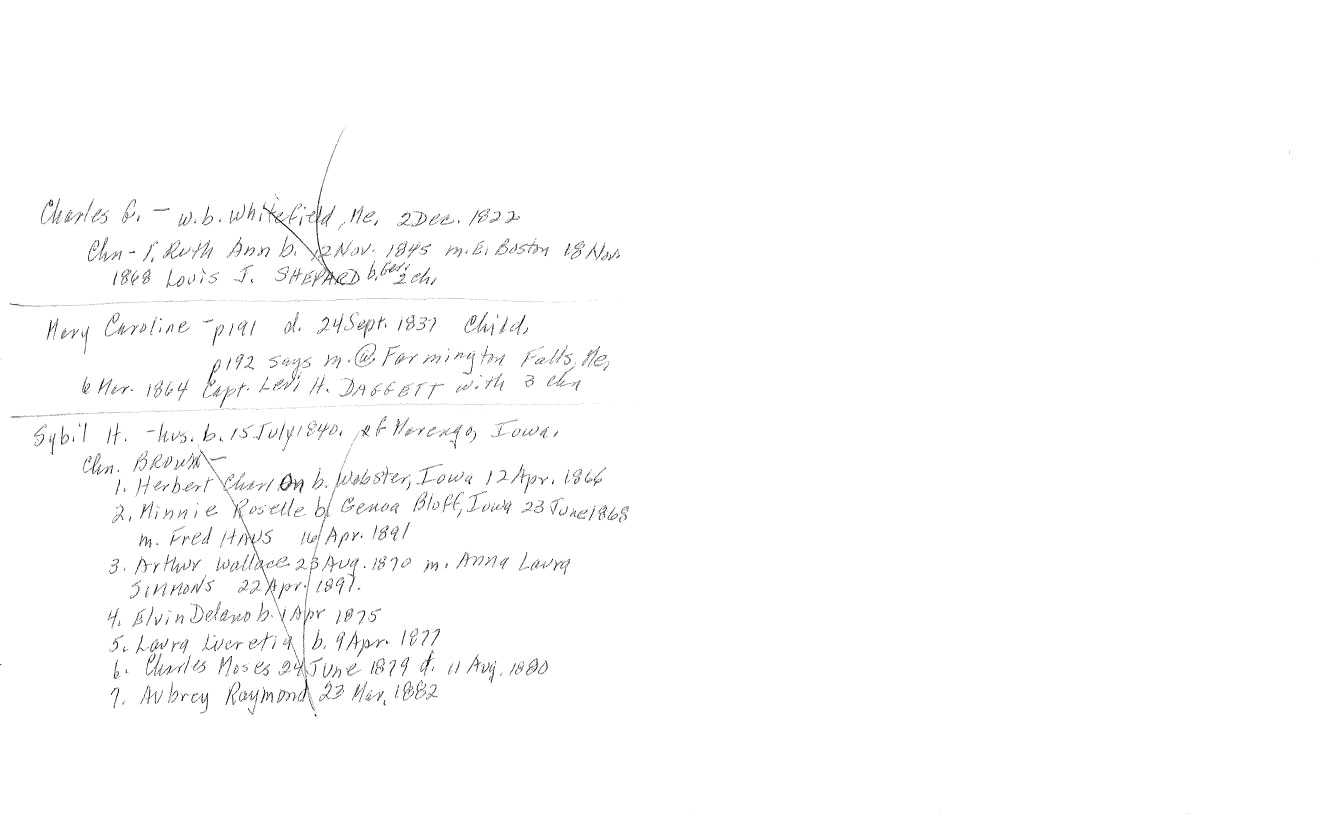 Charles G. - w.b. Whitefield, Me, 2 Dec. 1822
Chn - 1. Ruth Ann b. 12 Nov. 1845 m. E. Boston 18 Nov.
1868 Louis J. SHEPARD b. Ger. 2 ch.
Mary Caroline - p191 d. 24 Sept. 1837 Child,
p192 says m. @ Farmington Falls, Me,
6 Mar. 1864 Capt. Levi H. DAGGETT with 3 chn
Sybil H. - hus. b. 15 July 1840. of Marengo, Iowa.
Chn. BROWN -
1. Herbert Charlon b. Webster, Iowa 12 Apr. 1866
2. Minnie Roselle b. Genoa Bluff, Iowa 23 June 1868
m. Fred HAUS 16 Apr. 1891
3. Arthur Wallace 23 Aug. 1870 m. Anna Laura
SIMMONS 22 Apr. 1897.
4. Elvin Delano b. 1 Apr 1875
5. Laura Lucretia b. 9 Apr. 1877
6. Charles Moses 24 June 1879 d. 11 Aug. 1880
7. Aubrey Raymond 23 Mar, 1882